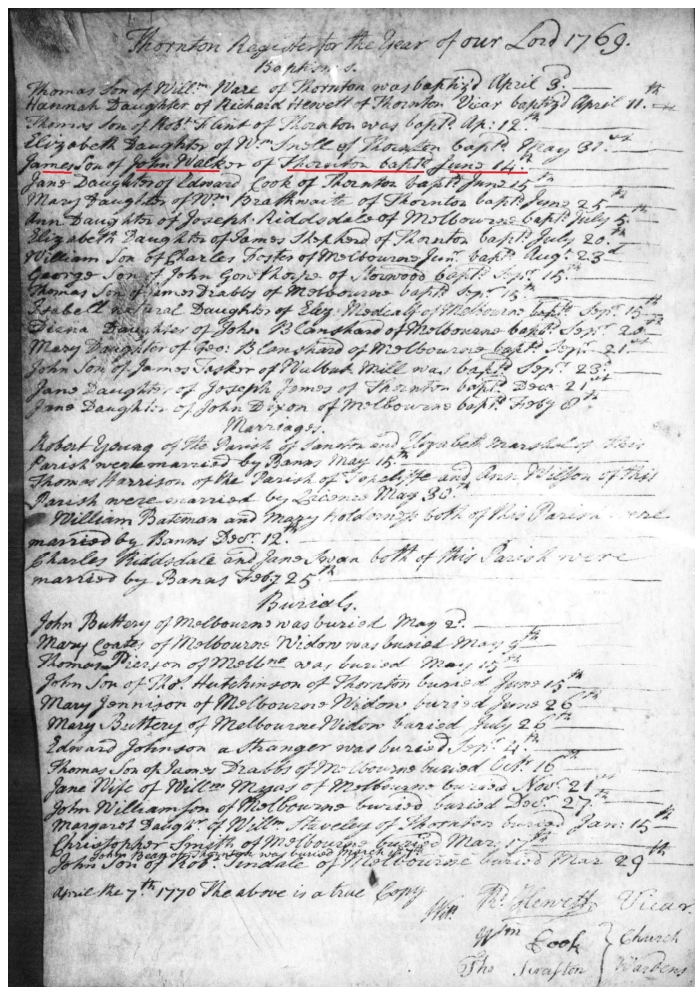 Thornton Register for the Year of our Lord 1769.
Baptisms.
Thomas Son of Willm Ware of Thornton was baptiz'd April 3d.
Hannah Daughter of Richard Hewett of Thornton Vicar baptiz'd April 11.th
Thomas Son of Robt Flint of Thornton was baptd Ap: 12th
Elizabeth Daughter of Wm Snell of Thornton baptd May 31st
James Son of John Walker of Thornton baptd June 14.th
Jane Daughter of Edward Cook of Thornton baptd June 15th
Mary Daughter of Wm Brathwaite of Thornton baptd June 25th
Ann Daughter of Joseph Riddsdale of Melbourne baptd July 5th
Elizabeth Daughter of James Shepherd of Thornton baptd July 20th
William Son of Charles Foster of Melbourne Junr baptd Augt 23d
George Son of John Thorpe of Storwood baptd Sepr 15th
Thomas Son of James Drabbs of Melbourne baptd Sepr 15th
Isabell natural Daughter of Eliz: Medcalf of Melbourne baptd Sepr 15th
Diana Daughter of John Blanshard of Melbourne baptd Sepr 20th
Mary Daughter of Geo: Blanshard of Melbourne baptd Sepr 21st
John Son of James Tasker of Walbut Mill was baptd Sepr 23d
Jane Daughter of Joseph James of Thornton baptd Decr 21st
Jane Daughter of John Dixon of Melbourne baptd Feby 8th
Marriages.
Robert Young of the Parish of Sancton and Elizabeth Marshal of this
Parish were married by Banns May 15th
Thomas Harrison of the Parish of Topcliffe and Ann Wilson of this
Parish were married by Licence May 30th
William Bateman and Mary Holderness both of this Parish were
married by Banns Decr 12th
Charles Riddsdale and Jane Swan both of this Parish were
married by Banns Feby 25th
Burials.
John Buttery of Melbourne was buried May 2d.
Mary Coates of Melbourne Widow was buried May 9th
Thomas Pierson of Melbne was buried May 15th
John Son of Thos Hutchinson of Thornton buried June 15th
Mary Jennison of Melbourne Widow buried June 26th
Mary Buttery of Melbourne Widow buried July 26th
Edward Johnson a Stranger was buried Sepr 4th
Thomas Son of James Drabbs of Melbourne buried Octr 16th
Jane Wife of Willm Magas of Melbourne buried Novr 21st
John Williamson of Melbourne buried buried Decr 27th
Margaret Daughr of Willm Staveley of Thornton buried Jan: 15th
Christopher Smith of Melbourne buried Mar: 17th
John Bean of Thornton was buried March
John Son of Robt Tindale of Melbourne buried Mar 29th
April the 7th 1770 The above is a true Copy
Rd Hewett Vicar
Wm Cook } Church
Tho Swafton } Wardens